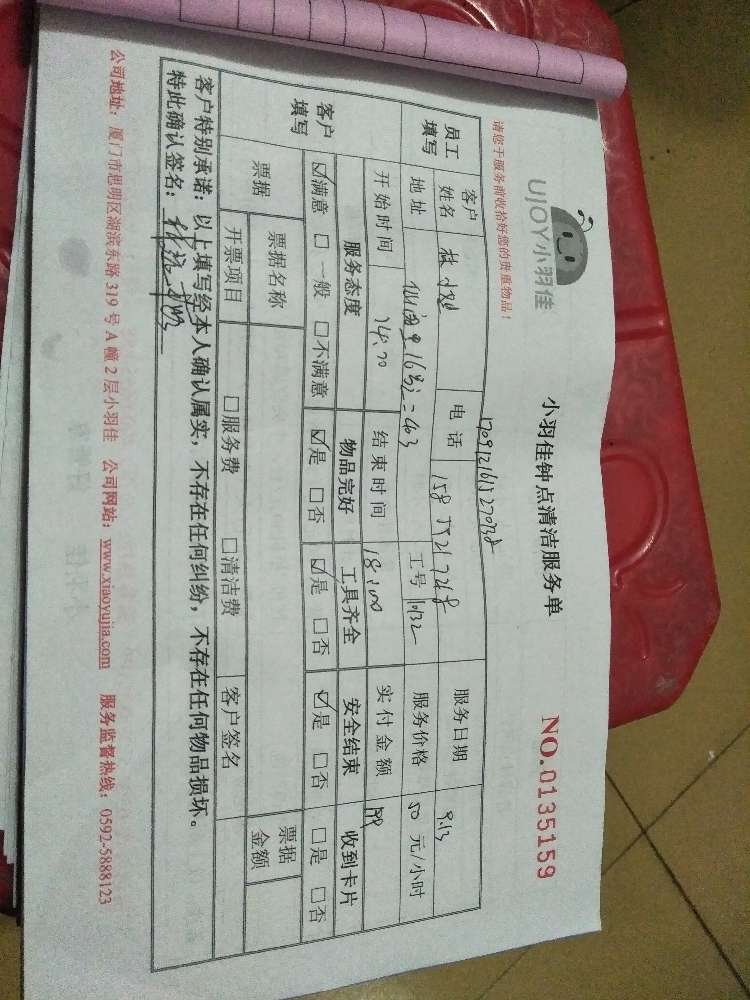 UJOY小羽佳
小羽佳钟点清洁服务单
NO.0135159
请您于服务前收拾好您的贵重物品！
员工填写 客户姓名 林 电话 服务日期 9.13
地址 403 工号 10132 服务价格 50 元/小时
开始时间 14:00 结束时间 18:00 实付金额
客户填写 服务态度 物品完好 工具齐全 安全结束 收到卡片
☑满意 □一般 □不满意 ☑是 □否 ☑是 □否 ☑是 □否 □是 □否
票据 票据名称 票据金额
开票项目 □服务费 □清洁费 客户签名
客户特别承诺：以上填写经本人确认属实，不存在任何纠纷，不存在任何物品损坏。
特此确认签名：
公司地址：厦门市思明区湖滨东路 319 号 A 幢 2 层小羽佳 公司网站：www.xiaoyujia.com 服务监督热线：0592-5888123